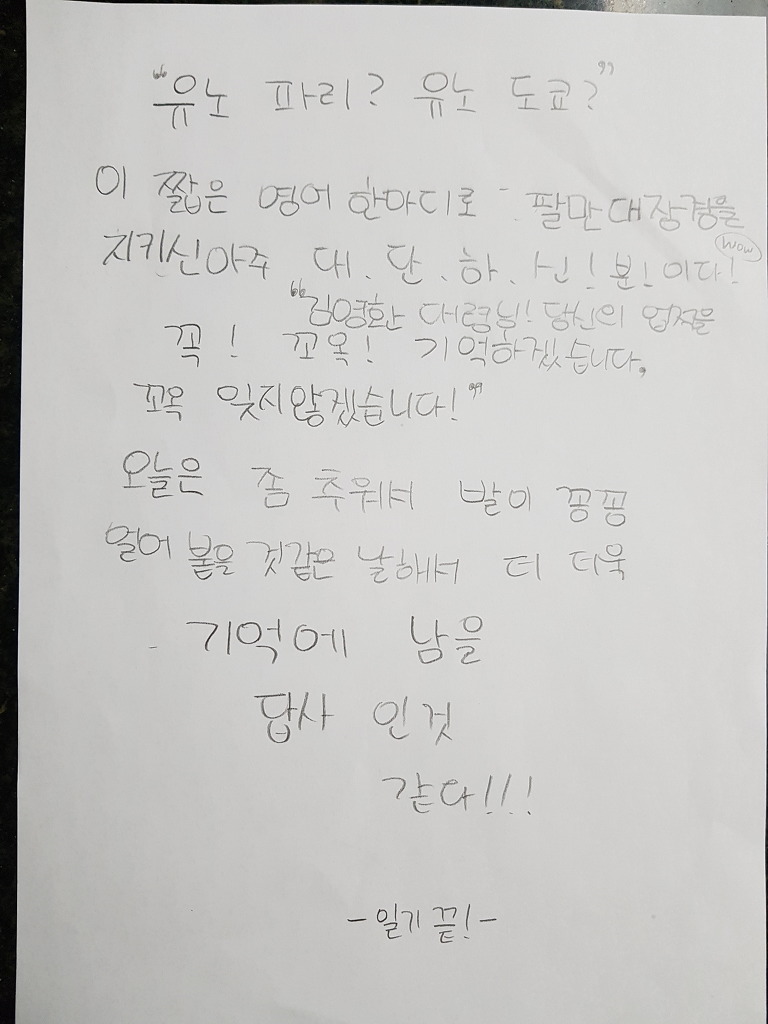 "유노 파리? 유노 도쿄?"
이 짧은 영어 한마디로 팔만대장경을
지키신아주 대.단.하.신!분!이다!
wow
"김영환 대령님! 당신의 업적을
꼭! 꼬옥! 기억하겠습니다,
꼬옥 잊지않겠습니다!"
오늘은 좀 추워서 발이 꽁꽁
얼어 붙을 것같은 날해서 더 더욱
기억에 남을
답사 인것
같다!!!
-일기 끝!-